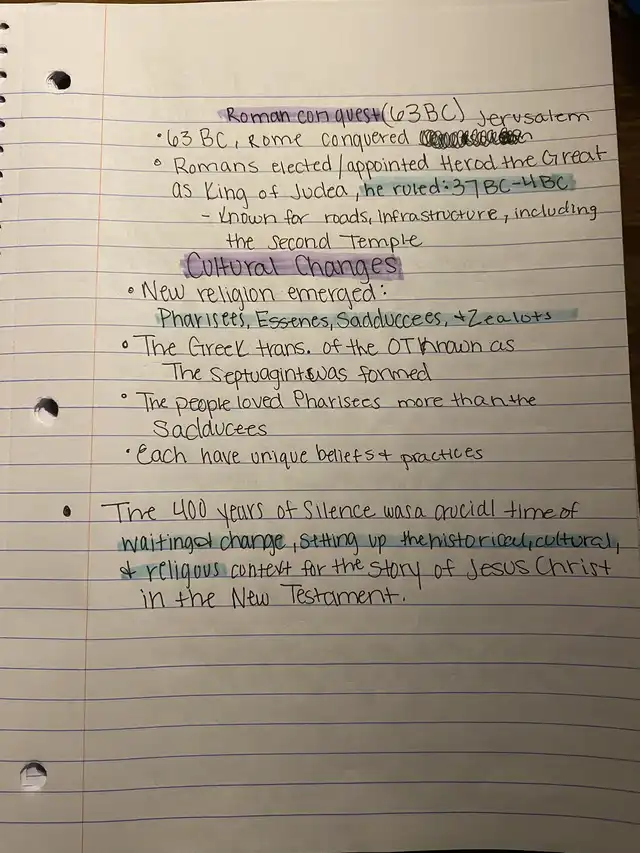 Roman conquest (63BC) Jerusalem
• 63 BC, Rome conquered
• Romans elected/appointed Herod the Great
as King of Judea, he ruled: 37BC-4BC
- Known for roads, infrastructure, including
the second Temple
Cultural Changes
• New religion emerged:
Pharisees, Essenes, Sadduccees, + Zealots
• The Greek trans. of the OT known as
The Septuagint was formed
• The people loved Pharisees more than the
Sadducees
• Each have unique beliefs + practices
• The 400 years of Silence was a crucial time of
waiting & change, setting up the historical, cultural,
& religous context for the story of Jesus Christ
in the New Testament.